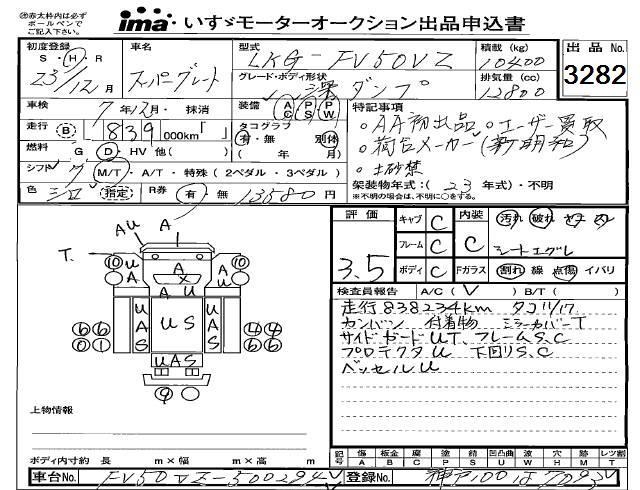 ㊟赤太枠内は必ず
ボールペンで
ご記入下さい。
ima いすゞモーターオークション出品申込書
初度登録 S・H・R 23/12月
車名 スーパーグレート
型式 LKG-FV50VZ
グレード・ボディ形状 深ダンプ
積載(kg) 10400
排気量(cc) 12800
出品No. 3282
車検 7年12月・抹消
装備 AC PS PW
走行 B 839 000km「 」
タコグラフ 有・無 別体 ( 年 月)
燃料 G・D・HV 他( )
シフト 7 M/T・A/T・特殊(2ペダル・3ペダル)
色 シロ (指定) R券 有・無 13580円
特記事項
○AA初出品 ○ユーザー買取
○荷台メーカー(新明和)
○土砂禁
架装物年式:(23年式)・不明
※不明の場合は、不明に○をする。
評価 3.5
キャブ C
フレーム C
ボディ C
内装 C
汚れ 破れ
シートエグレ
Fガラス 割れ 線 点傷 イバリ
検査員報告 A/C(V) B/T( )
走行838234km タコ11/17
カンバン 付着物 ミラーカバーT
サイドガードUT、フレームS、C
プロテクタU 下回りS、C
ベッセルU
A U A
T.
⑩ A ⑩
A U A
A U
UAS US UAS
⑥⑥ ④④
⓪① ⑥⑥
UAS
⑨
上物情報
ボディ内寸約 長 m×幅 m×高 m
記号 傷A 板金B 腐C 塗P 錆S 凹凸曲U 波W 穴H 跡M レツ割T
車台No. FV50VZ-500294
登録No. 神戸100は7093